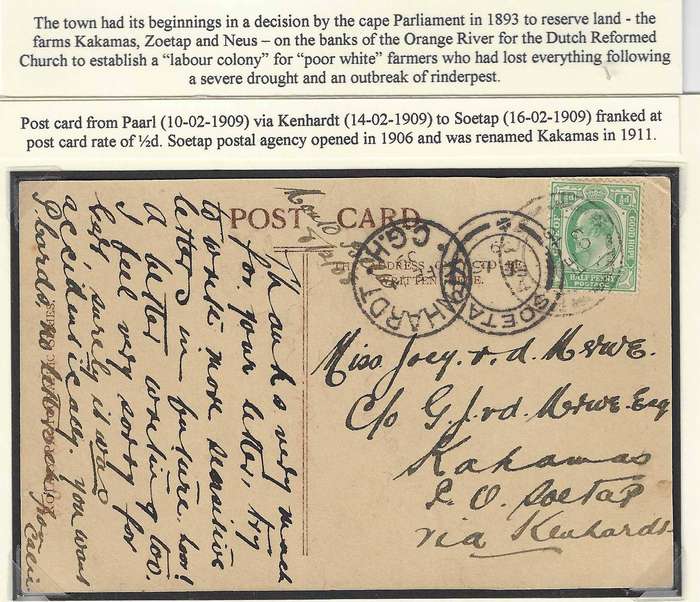 The town had its beginnings in a decision by the cape Parliament in 1893 to reserve land - the
farms Kakamas, Zoetap and Neus – on the banks of the Orange River for the Dutch Reformed
Church to establish a “labour colony” for “poor white” farmers who had lost everything following
a severe drought and an outbreak of rinderpest.
Post card from Paarl (10-02-1909) via Kenhardt (14-02-1909) to Soetap (16-02-1909) franked at
post card rate of ½d. Soetap postal agency opened in 1906 and was renamed Kakamas in 1911.
POST CARD.
THE ADDRESS ONLY TO BE
WRITTEN HERE.
KENHARDT
C.G.H.
SOETAP
GOOD HOPE
HALF PENNY
POSTAGE
Thanks very much
for your letter, try
to write more sensitive
letters in future. too!
A better writing too.
I feel very sorry for
self surely it was
accidentically. you want
P. cards no letters
from
Miss Joey v. d. Merwe.
c/o G. J. v d. Merwe Esq
Kakamas
P. O. Soetap
via Kenhardt